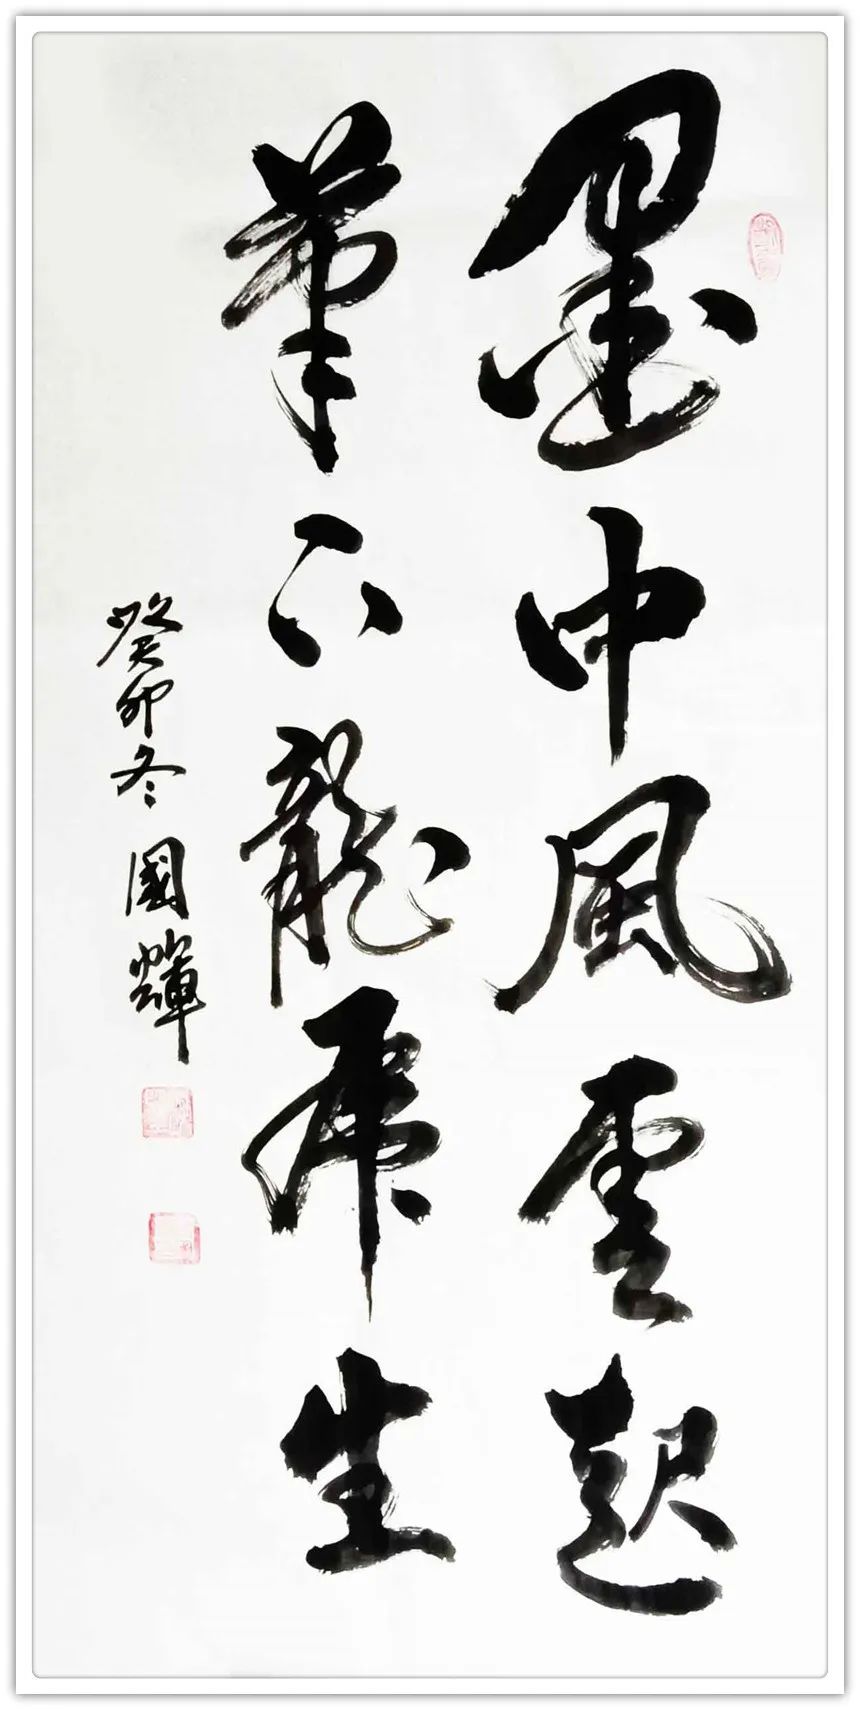 墨中風雲起
筆下龍虎生
癸卯冬國輝